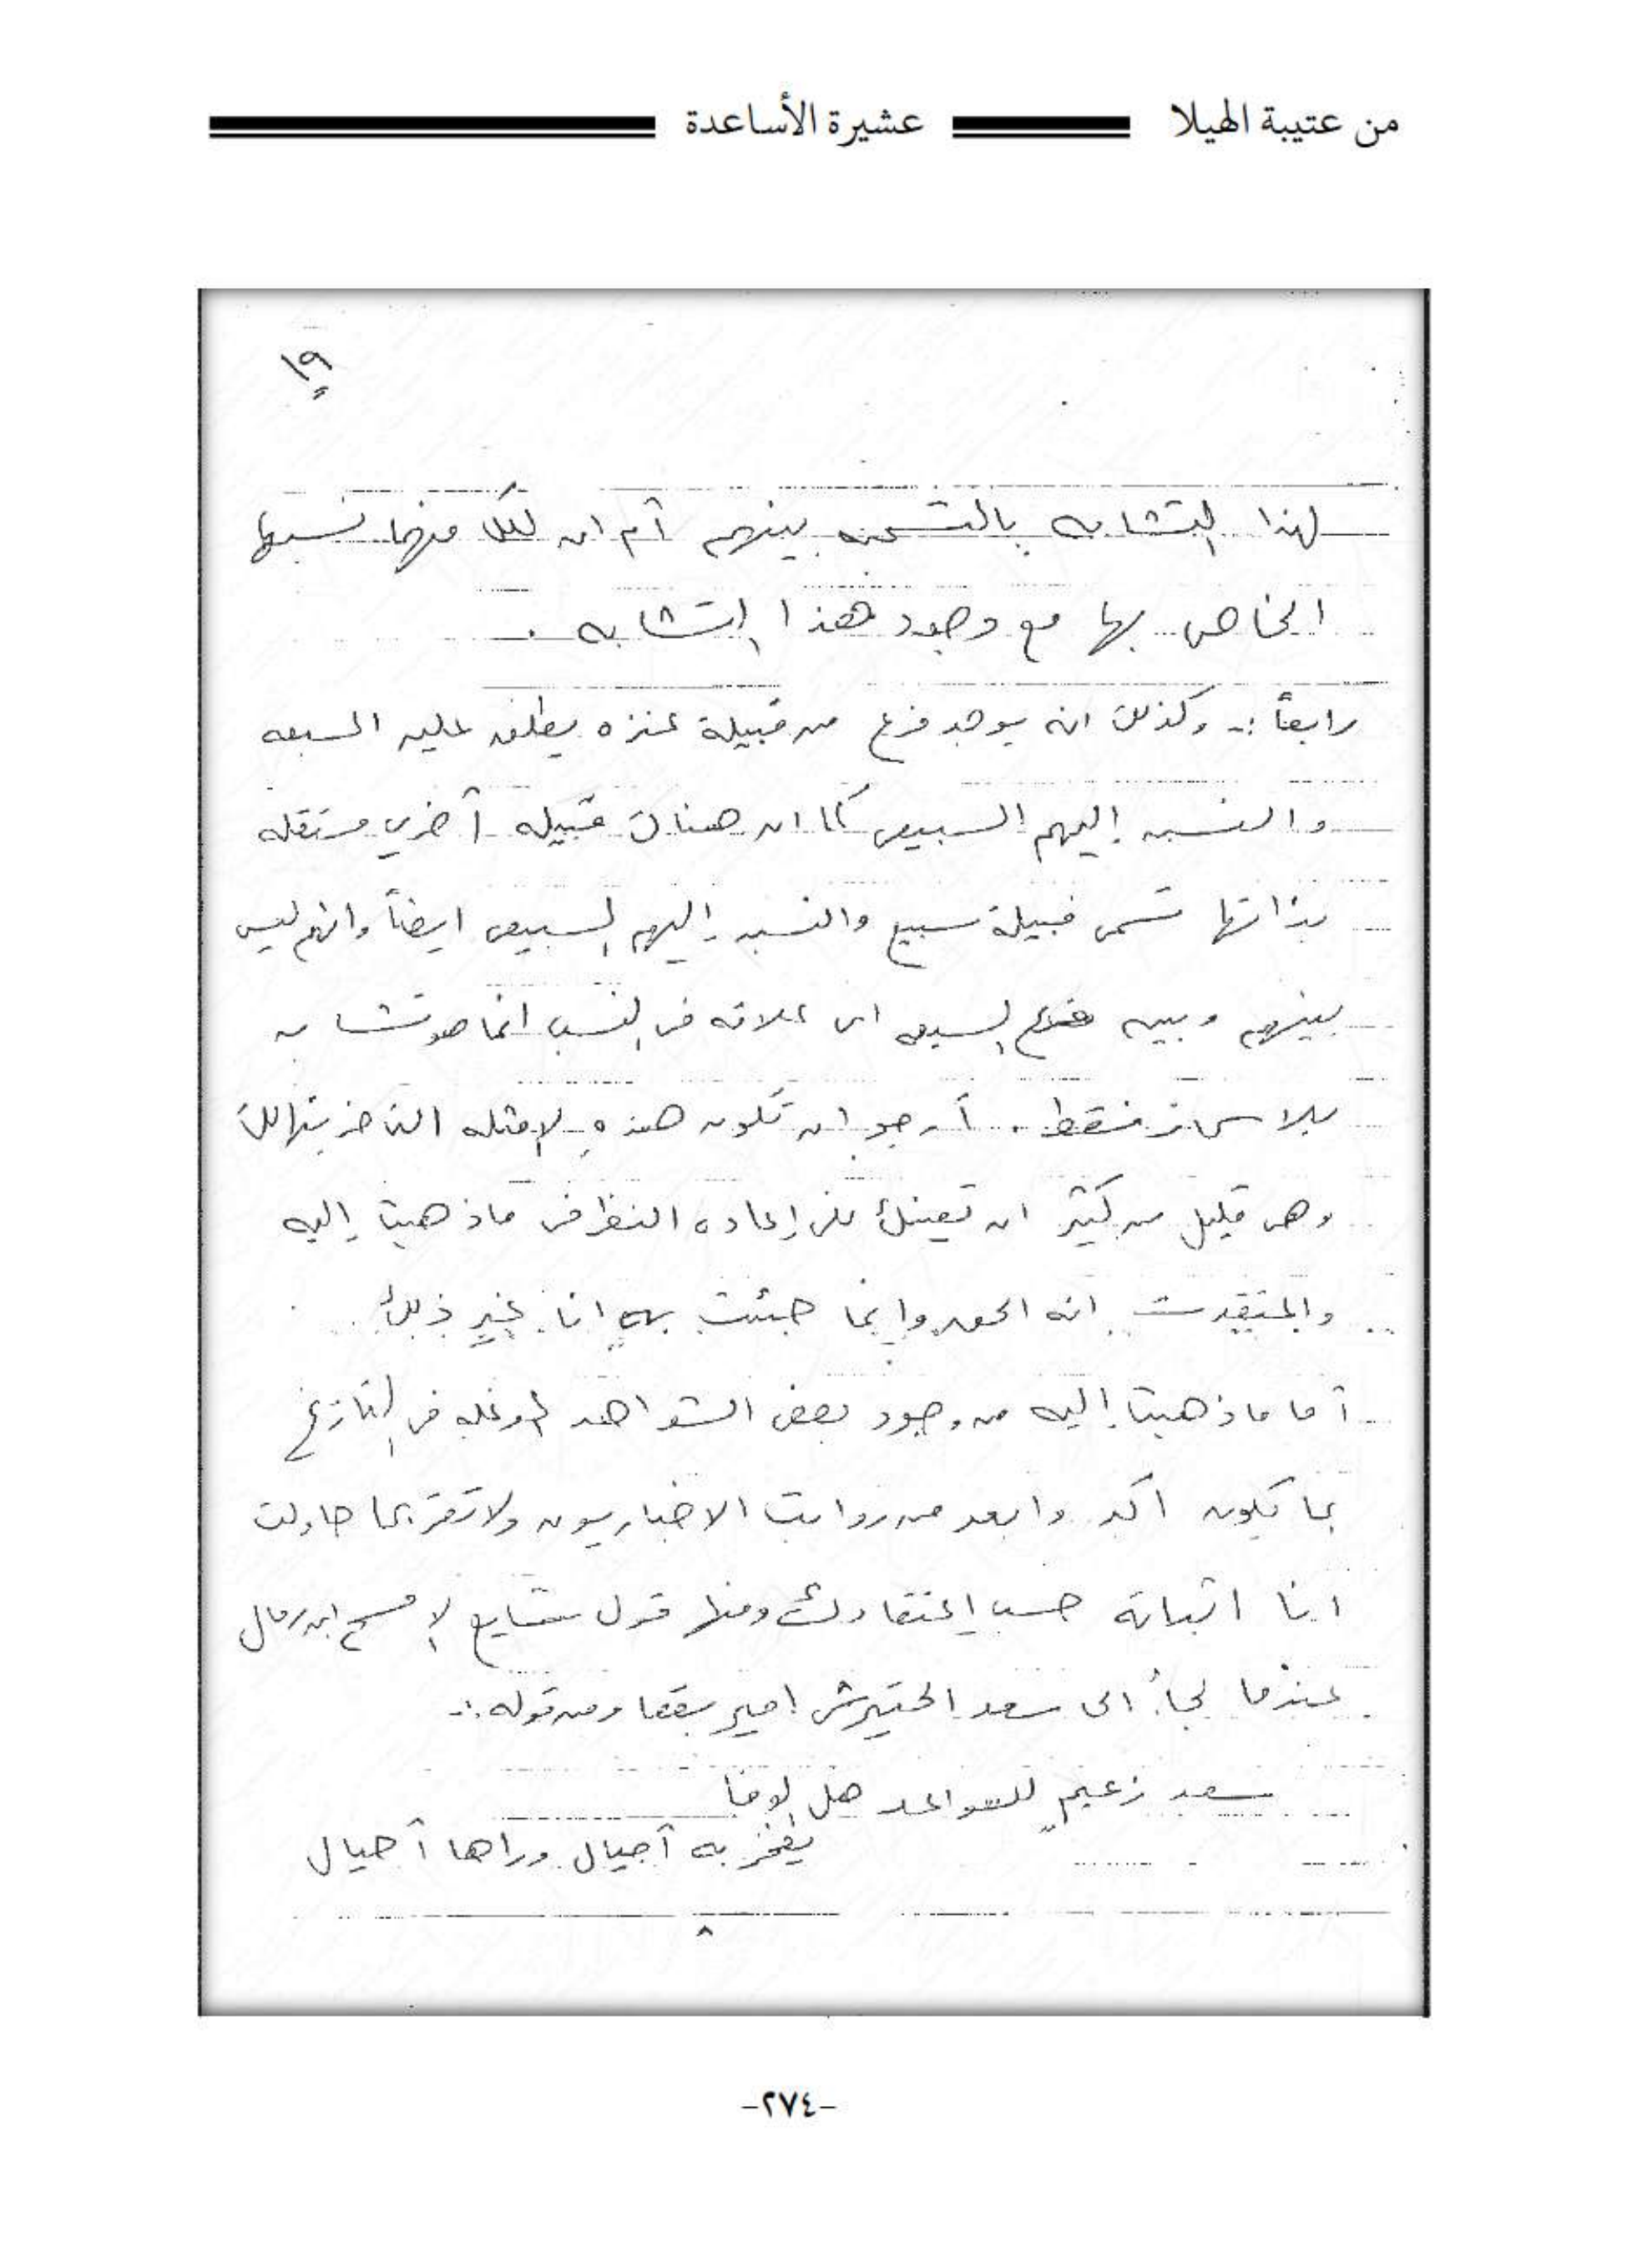 من عتيبة الهيلا عشيرة الأساعدة
١٩
لهذا التشابه بالتسميه بينهم أم ان لكل منهما نسبها
الخاص بها مع وجود هذا التشابه .
رابعاً :- وكذلك انه يوجد فرع من قبيلة عنزه يطلق عليه السبعه
والنسبه إليهم السبيعي كما ان هناك قبيله أخرى مستقله
بذاتها تسمى قبيلة سبيع والنسبه إليهم السبيعي ايضاً وانهم ليس
بينهم وبين فرع السبعه اى علاقه في النسب انما هو تشابه
بلا سماء فقط . أرجو ان تكون هذه الامثله التي ضربتها لك
وهي قليل من كثير ان تعينك على إعاده النظر في ماذهبت إليه
وإعتقدت انه الحق وإنما جئت به انا غير ذلك .
أما ماذهبت إليه من وجود بعض الشواهد الموغله في التاريخ
بما تكون اكد وابعد من روايت الاخباريون ولا تقر بما حاولت
انا اثباته حسب إعتقادك ومنها قول شايع الامسح ابن رمال
عندما لجأ الى سعد الحتيرش امير بقعا ومن قوله :-
سعد زعيم للسواعد هل الوفا
يفخر به أجيال وراها أجيال
٨
-٢٧٤-